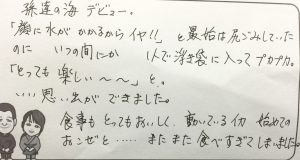 孫達の海デビュー。
「顔に水がかかるからイヤ!!」と最初は尻ごみしていた
のに いつの間にか 1人で浮き袋に入ってプカプカ。
「とっても楽しい〜〜」と。
いい思い出ができました。
食事もとってもおいしく、動いているイカ 始めての
おこぜと……またまた食べすぎてしまいました。